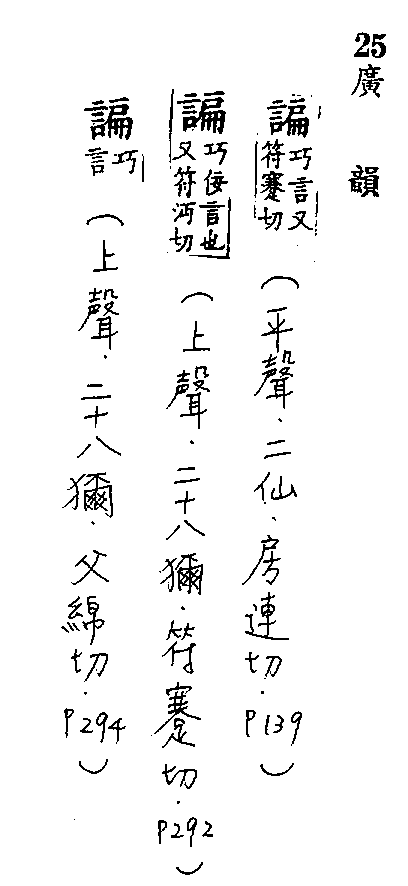 25廣韻
諞 巧言又符蹇切(平聲．二仙．房連切．P139)
諞 巧佞言也又符沔切(上聲．二十八獮．符蹇切．P292)
諞 巧言(上聲．二十八獮．父綿切．P294)